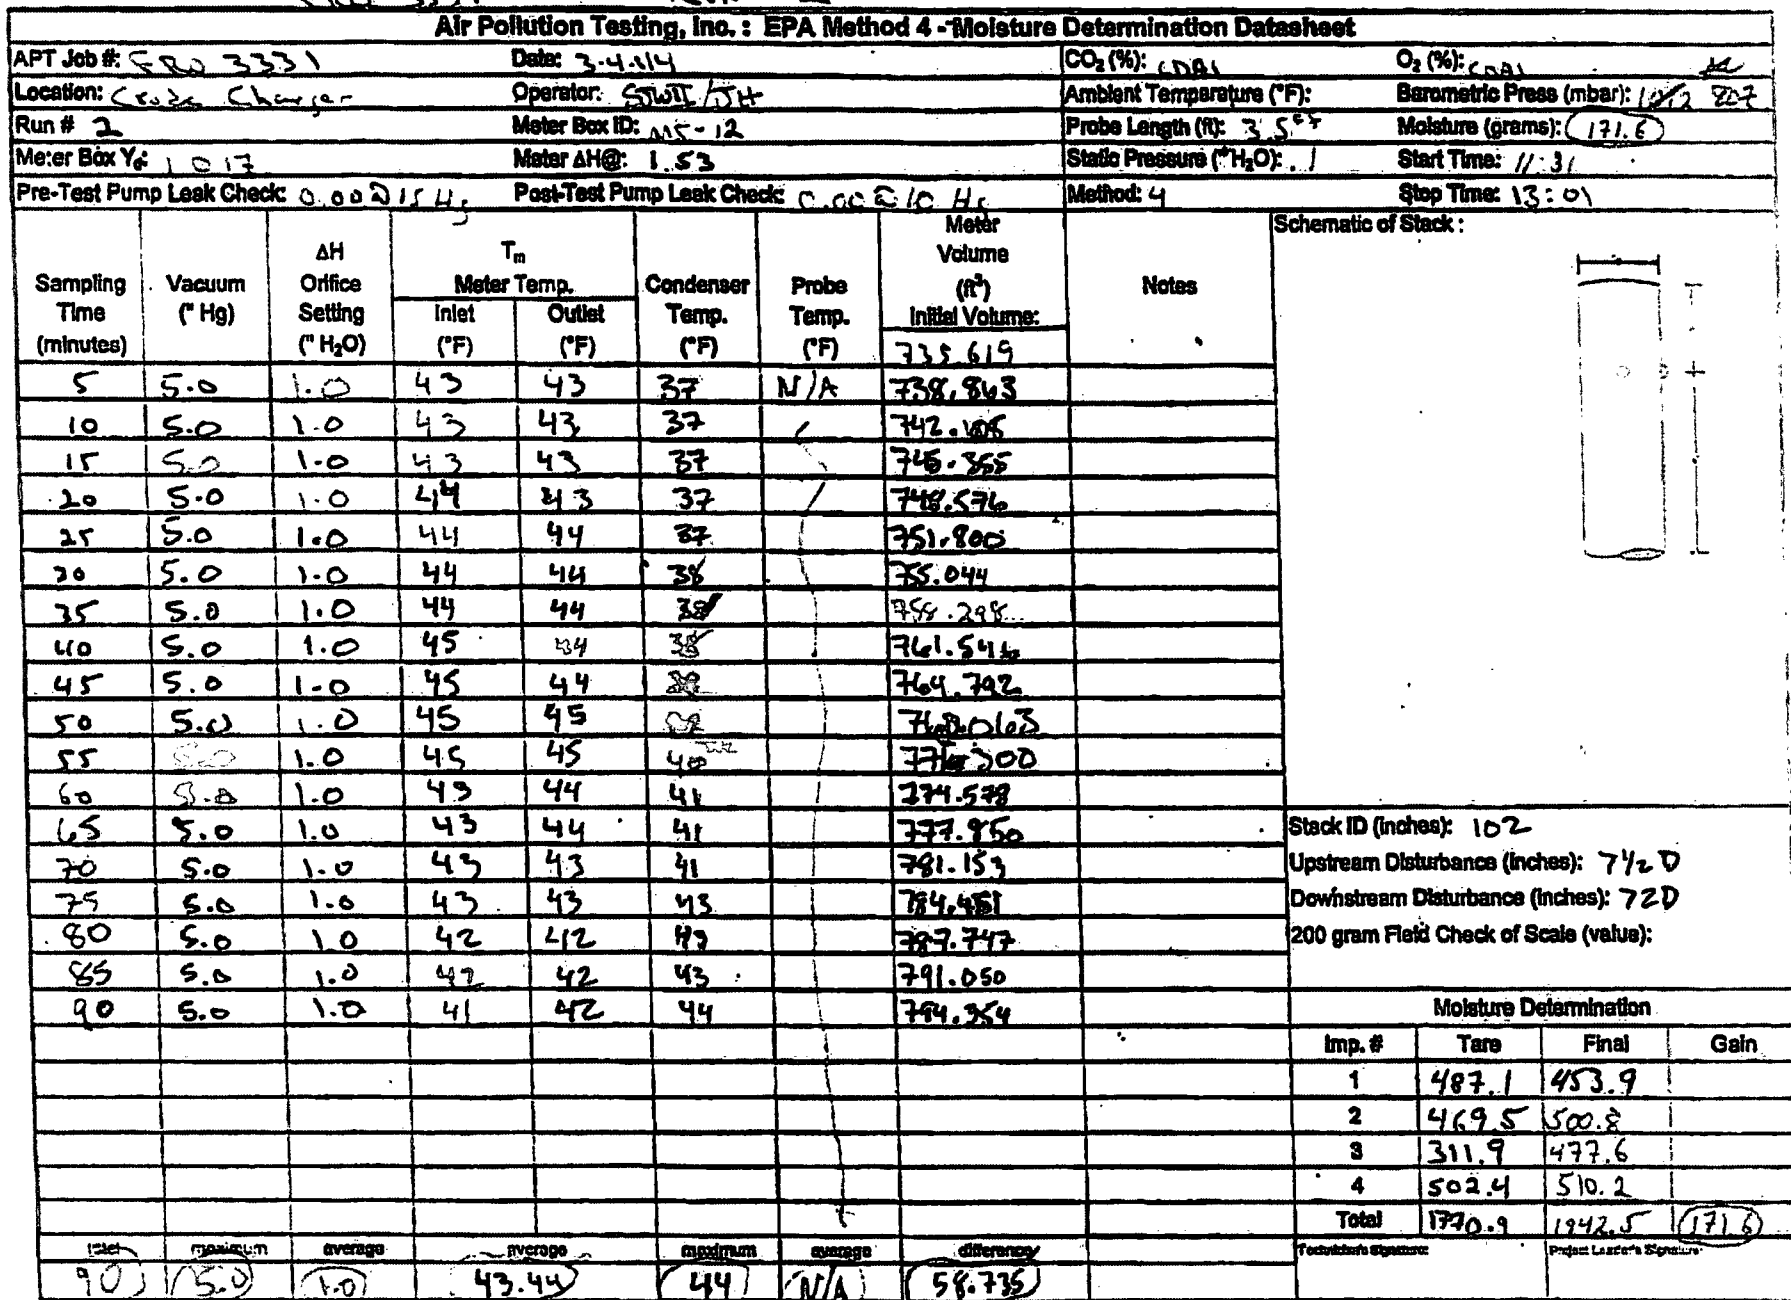 Air Pollution Testing, Inc. : EPA Method 4 - Moisture Determination Datasheet
APT Job #: FRO 3331 Date: 3-4-14 CO₂ (%): O₂ (%):
Location: Charger Operator: STWII/JH Ambient Temperature (°F): Barometric Press (mbar): 807
Run # 2 Meter Box ID: M5-12 Probe Length (ft): 3.5 ft Moisture (grams): 171.6
Meter Box Yd: 1.017 Meter ΔH@: 1.53 Static Pressure ("H₂O): .1 Start Time: 11:31
Pre-Test Pump Leak Check: 0.00 @ 15 Hg Post-Test Pump Leak Check: 0.00 @ 10 Hg Method: 4 Stop Time: 13:01
Sampling Time (minutes) Vacuum (" Hg) ΔH Orifice Setting (" H₂O) Tm Meter Temp. Inlet (°F) Outlet (°F) Condenser Temp. (°F) Probe Temp. (°F) Meter Volume (ft³) Initial Volume: 735.619 Notes Schematic of Stack :
5 5.0 1.0 43 43 37 N/A 738.863
10 5.0 1.0 43 43 37 742.108
15 5.0 1.0 43 43 37 745.355
20 5.0 1.0 44 43 37 748.576
25 5.0 1.0 44 44 37 751.800
30 5.0 1.0 44 44 38 755.044
35 5.0 1.0 44 44 38 758.298
40 5.0 1.0 45 44 38 761.546
45 5.0 1.0 45 44 764.792
50 5.0 1.0 45 45 768.063
55 5.0 1.0 45 45 40
60 5.0 1.0 43 44 41 774.578
65 5.0 1.0 43 44 41 777.850
70 5.0 1.0 43 43 41 781.153
75 5.0 1.0 43 43 43 784.451
80 5.0 1.0 42 42 43 787.747
85 5.0 1.0 42 42 43 791.050
90 5.0 1.0 41 42 44 794.354
Stack ID (inches): 102
Upstream Disturbance (inches): 7 1/2 D
Downstream Disturbance (inches): 72D
200 gram Field Check of Scale (value):
Moisture Determination
Imp. # Tare Final Gain
1 487.1 453.9
2 469.5 500.8
3 311.9 477.6
4 502.4 510.2
Total 1770.9 1942.5 171.6
Technician's Signature: Project Leader's Signature:
maximum average average maximum average difference
90 5.0 1.0 43.44 44 N/A 58.735